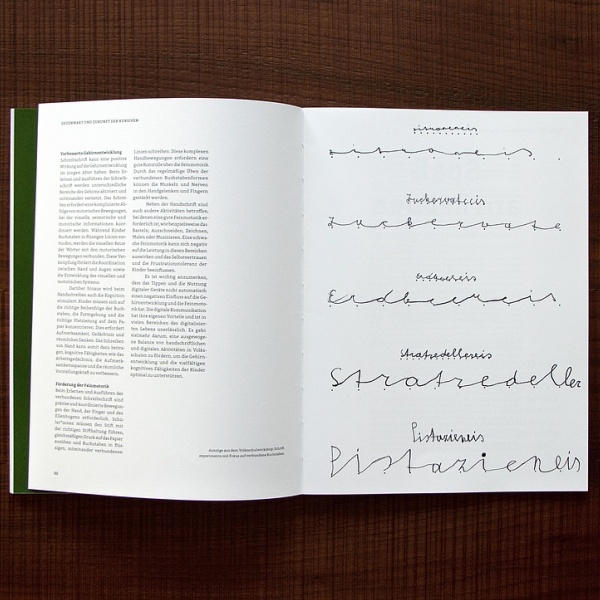 GEGENWART UND ZUKUNFT DER KURSIVEN
Verbesserte Gehirnentwicklung
Schreibschrift kann eine positive
Wirkung auf die Gehirnentwicklung
im jungen Alter haben. Beim Er-
lernen und Ausführen der Schreib-
schrift werden unterschiedliche
Bereiche des Gehirns aktiviert und
miteinander vernetzt. Das Schrei-
ben erfordert eine komplizierte Ab-
folge von motorischen Bewegungen,
bei der visuelle, sensorische und
motorische Informationen koor-
diniert werden. Während Kinder
Buchstaben in flüssigen Linien verbin-
den, werden die visuellen Reize
der Wörter mit den motorischen
Bewegungen verbunden. Diese Ver-
knüpfung fördert die Koordination
zwischen Hand und Augen sowie
die Entwicklung des visuellen und
motorischen Systems.
Darüber hinaus wird beim
Handschreiben auch die Kognition
stimuliert. Kinder müssen sich auf
die richtige Reihenfolge der Buch-
staben, die Formgebung und die
richtige Platzierung auf dem Pa-
pier konzentrieren. Dies erfordert
Aufmerksamkeit, Gedächtnis und
räumliches Denken. Das Schreiben
von Hand kann somit dazu beitra-
gen, kognitive Fähigkeiten wie das
Arbeitsgedächtnis, die Aufmerk-
samkeitsspanne und die räumliche
Vorstellungskraft zu verbessern.
Förderung der Feinmotorik
Beim Erlernen und Ausführen der
verbundenen Schreibschrift sind
präzise und koordinierte Bewegun-
gen der Hand, der Finger und des
Ellenbogens erforderlich. Schü-
ler*innen müssen den Stift mit
der richtigen Stifthaltung führen,
gleichmäßigen Druck auf das Papier
ausüben und Buchstaben in flüs-
sigen, miteinander verbundenen
Linien schreiben. Diese komplexen
Handbewegungen erfordern eine
gute Kontrolle über die Feinmotorik.
Durch das regelmäßige Üben der
verbundenen Buchstabenformen
können die Muskeln und Nerven
in den Handgelenken und Fingern
gestärkt werden.
Neben der Handschrift sind
auch andere Aktivitäten betroffen,
bei denen eine gute Feinmotorik er-
forderlich ist, wie beispielsweise das
Basteln, Ausschneiden, Zeichnen,
Malen oder Musizieren. Eine schwa-
che Feinmotorik kann sich negativ
auf die Leistung in diesen Bereichen
auswirken und das Selbstvertrauen
und die Frustrationstoleranz der
Kinder beeinflussen.
Es ist wichtig anzumerken,
dass das Tippen und die Nutzung
digitaler Geräte nicht automatisch
einen negativen Einfluss auf die Ge-
hirnentwicklung und die Feinmoto-
rik hat. Die digitale Kommunikation
hat ihre eigenen Vorteile und ist in
vielen Bereichen des digitalisier-
ten Lebens unerlässlich. Es geht
vielmehr darum, eine ausgewoge-
ne Balance von handschriftlichen
und digitalen Aktivitäten in Volks-
schulen zu fördern, um die Gehirn-
entwicklung und die vielfältigen
kognitiven Fähigkeiten der Kinder
optimal zu unterstützen.
Zitroneneis
Zuckerwatteeis
Zuckerwatte
Erdbeereis
Erdbeereis
Stratzedellereis
Stratzedeller
Pistazieneis
Pistazieneis